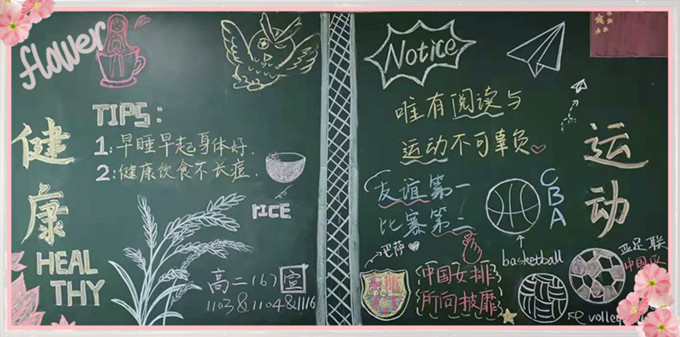 flower
健康
HEAL
THY
TIPS:
1:早睡早起身体好.
2:健康饮食不长痘.
RICE
高二(6)宣
1103&1104&1116
Notice
唯有阅读与
运动不可辜负
友谊第一
比赛第二
运动
CBA
basketball
巴萨
中国女排
所向披靡
亚足联
中国队
volley